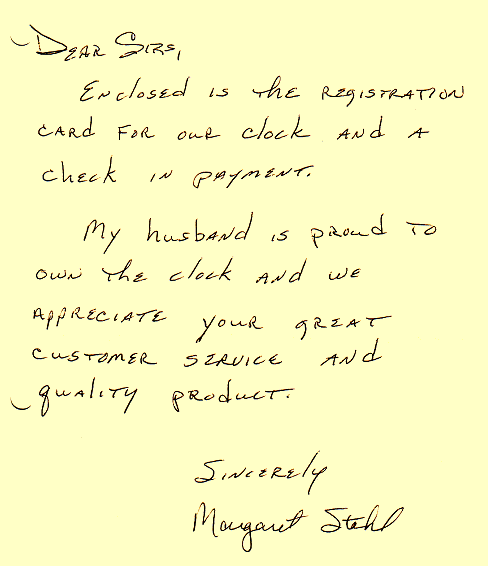 Dear Sirs,
Enclosed is the registration
card for our clock and a
check in payment.
My husband is proud to
own the clock and we
appreciate your great
customer service and
quality product.
Sincerely
Margaret Stehl